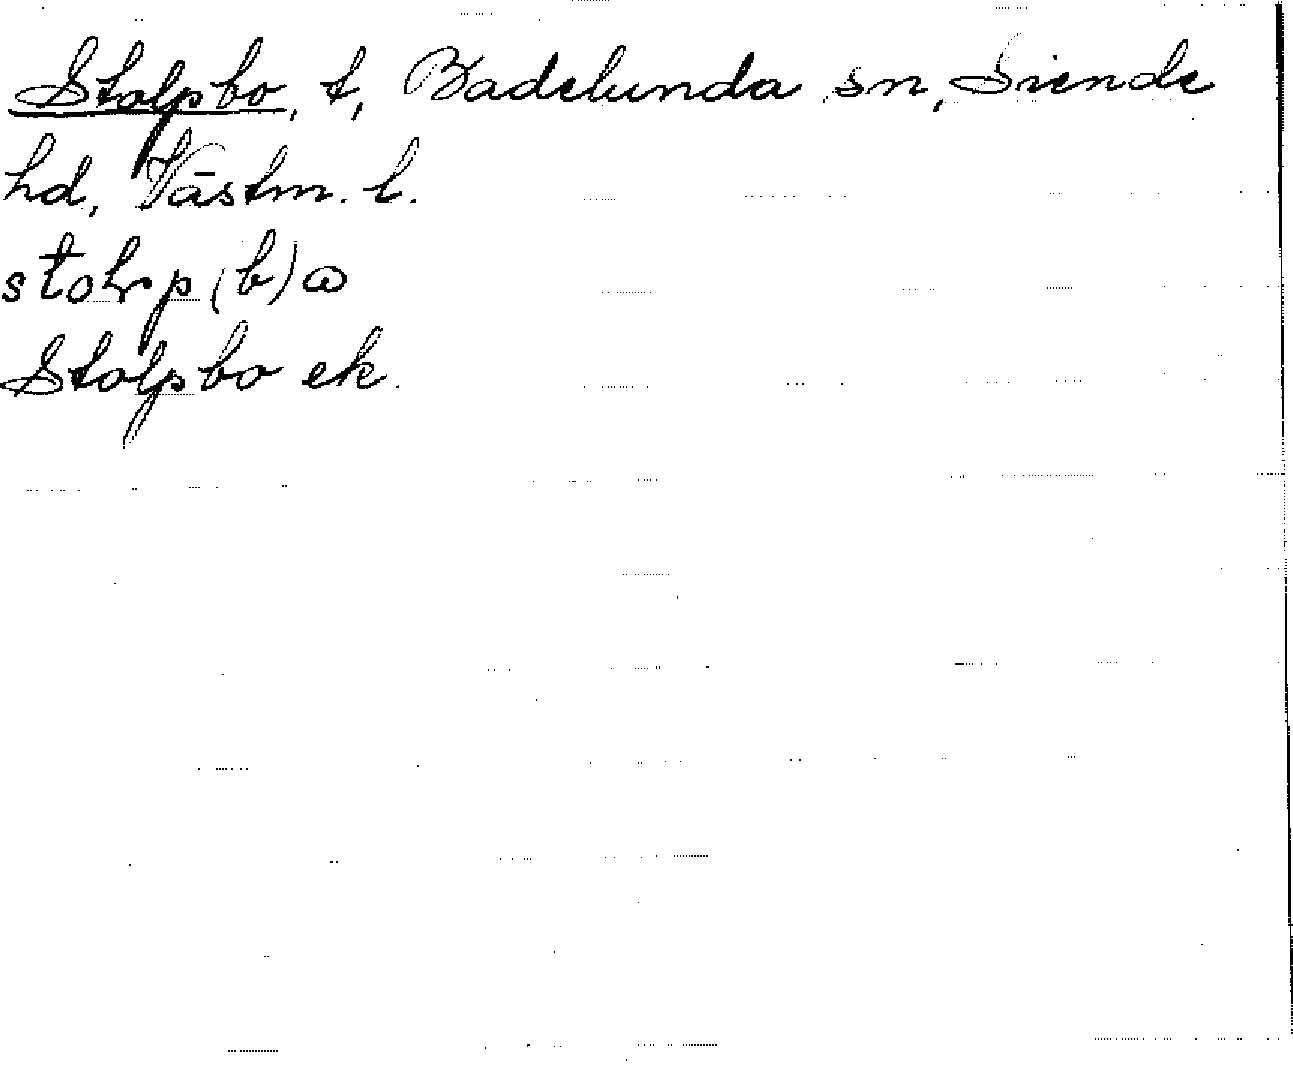 Stolpbo, t, Badelunda sn, Siende
hd, Västm. l.
Stolpbo ek.